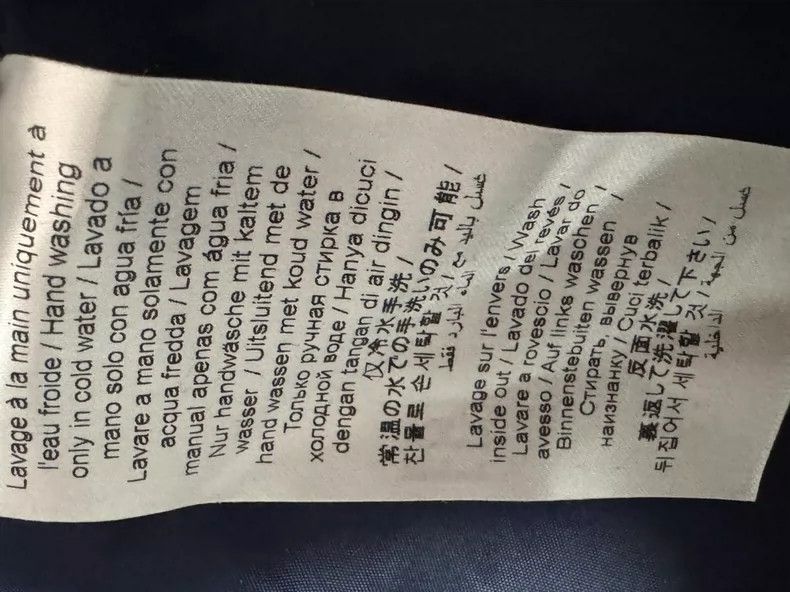 Lavage à la main uniquement à
l'eau froide / Hand washing
only in cold water / Lavado a
mano solo con agua fría /
Lavare a mano solamente con
acqua fredda / Lavagem
manual apenas com água fria /
Nur handwasche mit kaltem
wasser / Uitsluitend met de
hand wassen met koud water /
Только ручная стирка в
холодной воде / Hanya dicuci
dengan tangan di air dingin /
仅冷水手洗 /
常温の水での手洗いのみ可能 /
찬물로 손세탁할 것 /
غسل باليد مع الماء البارد فقط
Lavage sur l'envers / Wash
inside out / Lavado del revés /
Lavare a rovescio / Lavar do
avesso / Auf links waschen /
Binnenstebuiten wassen /
Стирать, вывернув
наизнанку / Cuci terbalik /
反面水洗 /
裏返して洗濯して下さい /
뒤집어서 세탁할 것 /
غسل من الجهة الداخلية